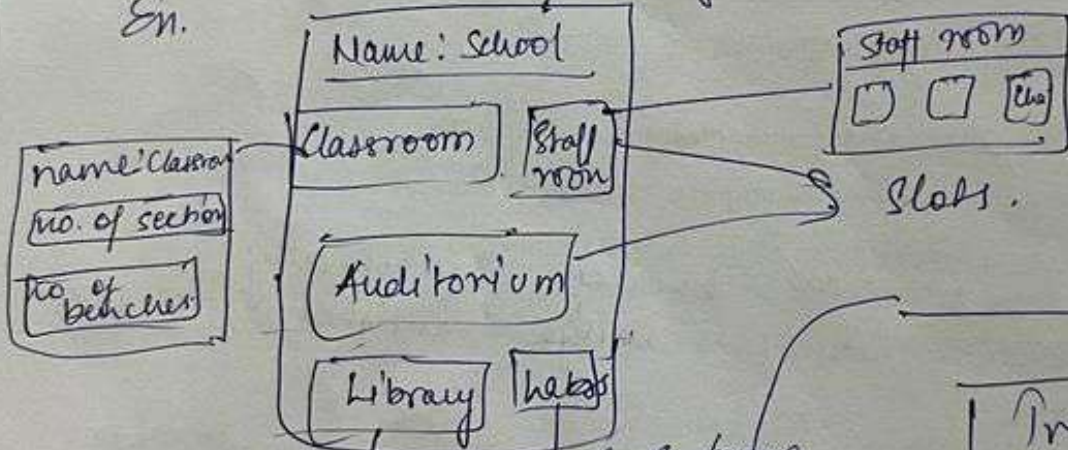 En.
Name: School
Classroom
Staff
room
Auditorium
Library
Labs
name: Classroom
no. of section
no. of
benches
Staff room
Cha
Slots.